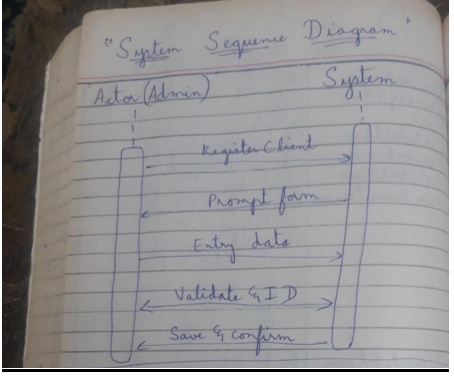 "System Sequence Diagram"
Actor (Admin) System
Register Client
Prompt form
Entry data
Validate & ID
Save & confirm